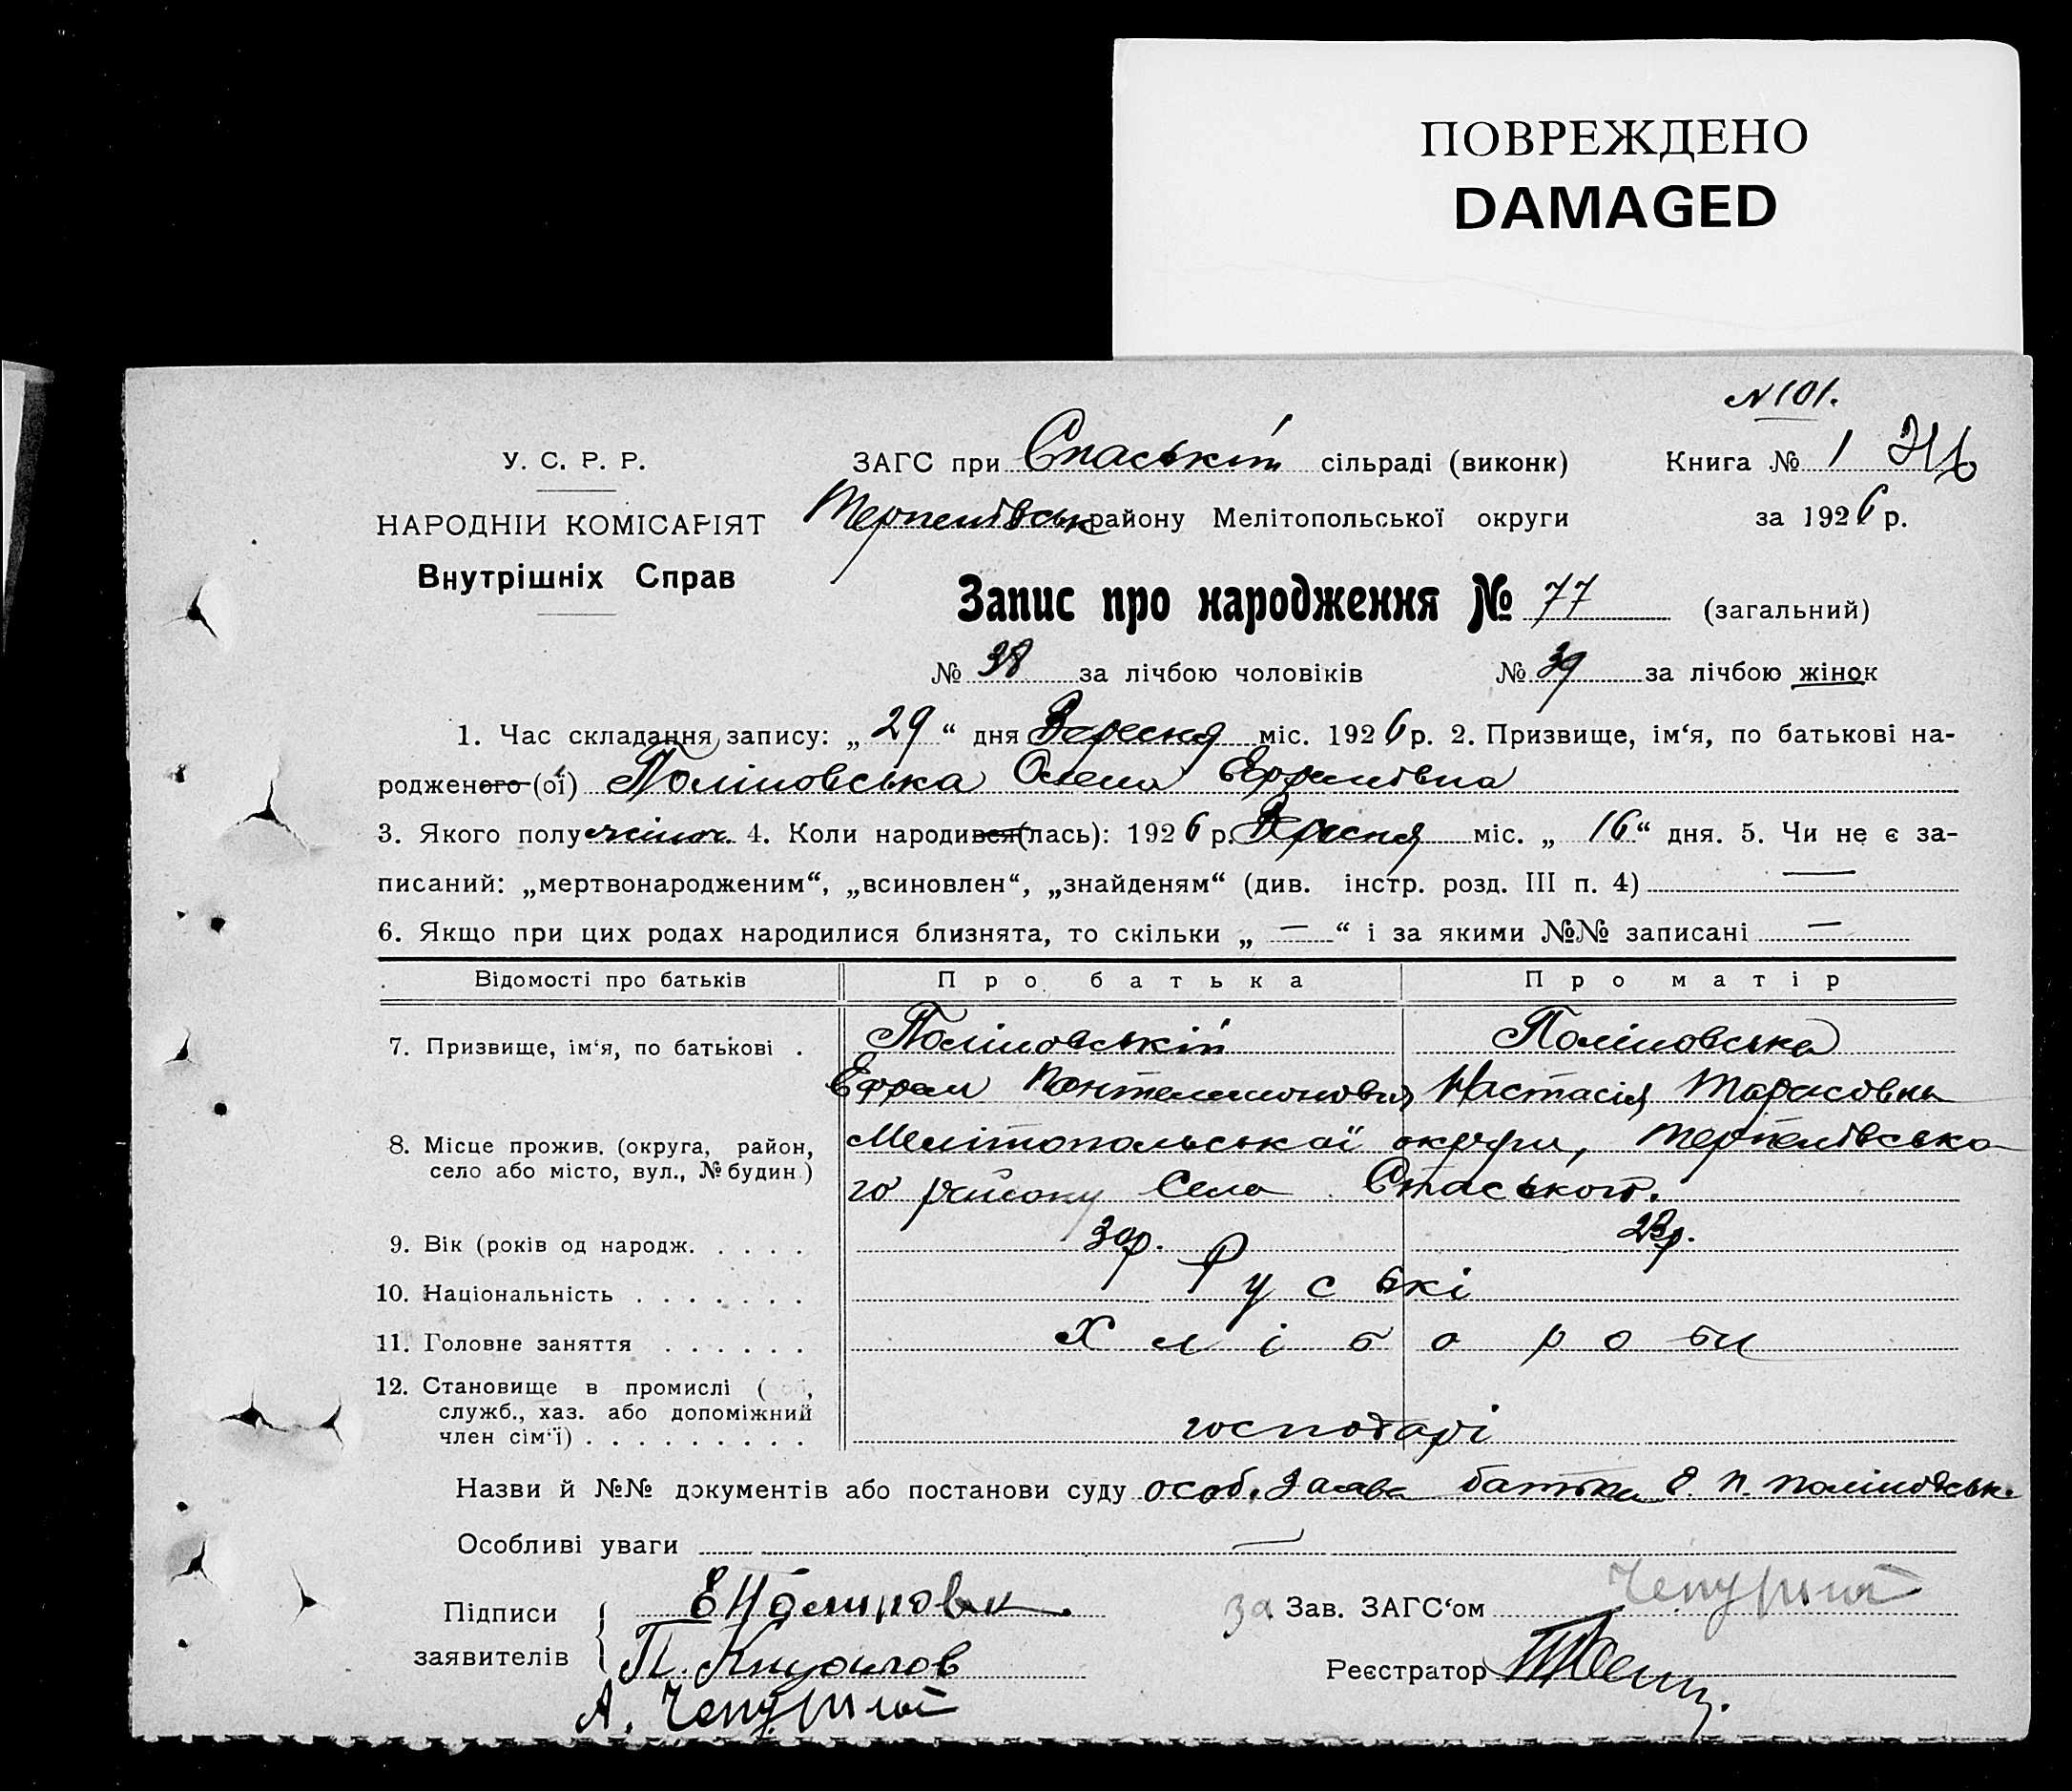 ПОВРЕЖДЕНО
DAMAGED
N 101.
У. С. Р. Р.
ЗАГС при Спаській сільраді (виконк)
Книга № 1
НАРОДНІЙ КОМІСАРІЯТ
Терпенівськ району Мелітопольської округи
за 1926 р.
Внутрішніх Справ
Запис про народження № 77 (загальний)
№ 38 за лічбою чоловіків № 39 за лічбою жінок
1. Час складання запису: „ 29 “ дня Вересня міс. 1926 р. 2. Призвище, ім‘я, по батькові на-
родженого (ої) Поліновська Олена Ефремівна
3. Якого полу жіноч. 4. Коли народився(лась): 1926 р. Вресня міс. „ 16 “ дня. 5. Чи не є за-
писаний: „мертвонародженим“, „всиновлен“, „знайденям“ (див. інстр. розд. III п. 4) —
6. Якщо при цих родах народилися близнята, то скільки „ — “ і за якими №№ записані —
Відомості про батьків
Про батька
Про матір
7. Призвище, ім‘я, по батькові .
Поліновській
Поліновська
Ефрем Пантелимонович Настасія Тарасовна
8. Місце прожив. (округа, район,
село або місто, вул., № будин.)
Мелітопольської округи, Терпенівсько-
го району Села Спаського.
9. Вік (років од народж. . . . .
30р.
23р.
10. Національність . . . . . . .
Руські
11. Головне заняття . . . . . .
Хлібороби
12. Становище в промислі ( ,
служб., хаз. або допоміжний
член сім‘ї) . . . . . . . . .
господарі
Назви й №№ документів або постанови суду особ. Заява батька Е. П. Поліновськ.
Особливі уваги —
Підписи
заявителів
за Зав. ЗАГС‘ом Чепурний
Реєстратор
А. Чепурний